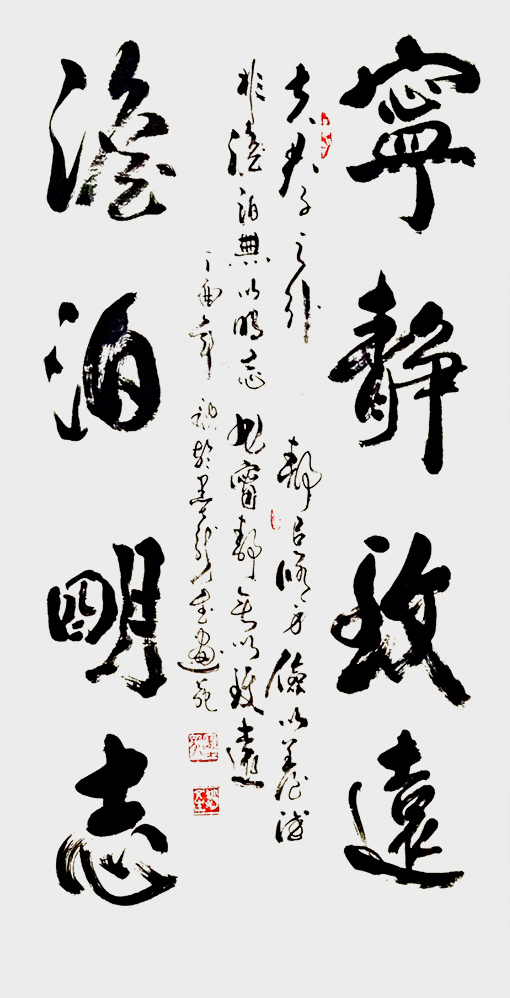 寧靜致遠
夫君子之行 靜㠯修身 儉以養德
非澹泊無以明志 非寧靜無以致遠
丁酉年 於 畫苑
澹泊明志